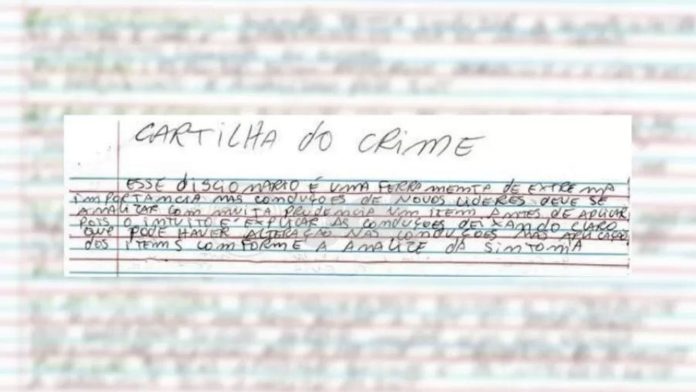 CARTILHA do CRIME
ESSE discionario É UMA FERRAMENTA DE EXTREMA
IMPORTANCIA NAS CONDUÇÕES DE NOVOS LIDERES DEVE SE
ANALIZAR COM MUITA PRUDENCIA UM ITEM ANTES DE APLICAR
POIS O INTUITO É EXPLICAR AS CONDUÇÕES DEIXANDO CLARO
QUE PODE HAVER ALTERAÇÃO NAS CONDUÇÕES NAS APLICAÇÃO
DOS ITEMS COMFORME A ANALIZE DA SINTONIA